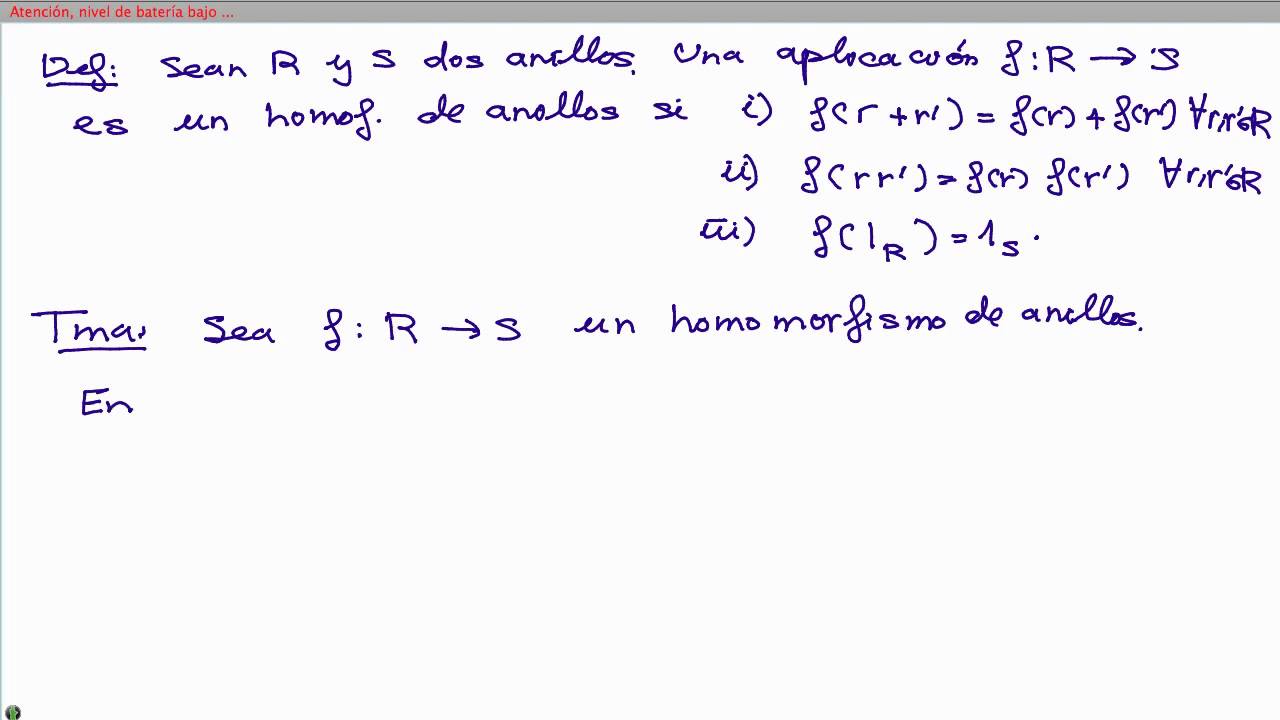 Atención, nivel de batería bajo ...
Def: Sean R y S dos anillos. Una aplicación f: R → S
es un homof. de anillos si i) f(r + r') = f(r) + f(r') ∀r,r'∈R
ii) f(r r') = f(r) f(r') ∀r,r'∈R
iii) f(1_R) = 1_S.
Tma: Sea f: R → S un homomorfismo de anillos.
En